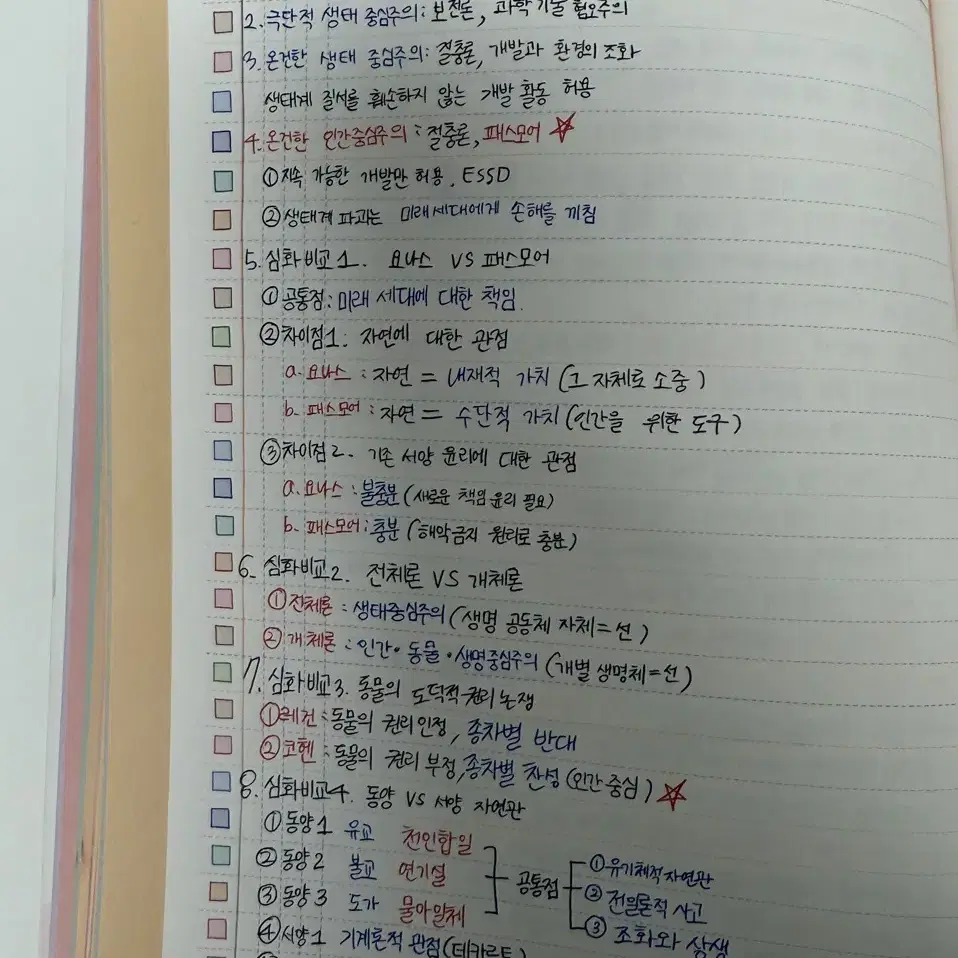 2. 극단적 생태 중심주의: 보전론, 과학기술 혐오주의
3. 온건한 생태 중심주의: 절충론, 개발과 환경의 조화
생태계 질서를 훼손하지 않는 개발 활동 허용
4. 온건한 인간중심주의: 절충론, 패스모어 ☆
① 지속 가능한 개발만 허용. ESSD
② 생태계 파괴는 미래세대에게 손해를 끼침
5. 심화비교 1. 요나스 VS 패스모어
① 공통점: 미래 세대에 대한 책임.
② 차이점1. 자연에 대한 관점
a. 요나스 : 자연 = 내재적 가치 (그 자체로 소중)
b. 패스모어 : 자연 = 수단적 가치 (인간을 위한 도구)
③ 차이점2. 기존 서양 윤리에 대한 관점
a. 요나스 : 불충분 (새로운 책임 윤리 필요)
b. 패스모어 : 충분 (해악금지 원리로 충분)
6. 심화비교2. 전체론 VS 개체론
① 전체론 : 생태중심주의 (생명 공동체 자체=선)
② 개체론 : 인간·동물·생명중심주의 (개별 생명체=선)
7. 심화비교3. 동물의 도덕적 권리 논쟁
① 레건 : 동물의 권리 인정, 종차별 반대
② 코헨 : 동물의 권리 부정, 종차별 찬성 (인간 중심) ☆
8. 심화비교4. 동양 VS 서양 자연관
① 동양1 유교 천인합일
② 동양2 불교 연기설
③ 동양3 도가 물아일체
공통점
① 유기체적 자연관
② 전일론적 사고
③ 조화와 상생
④ 서양1 기계론적 관점(데카르트)